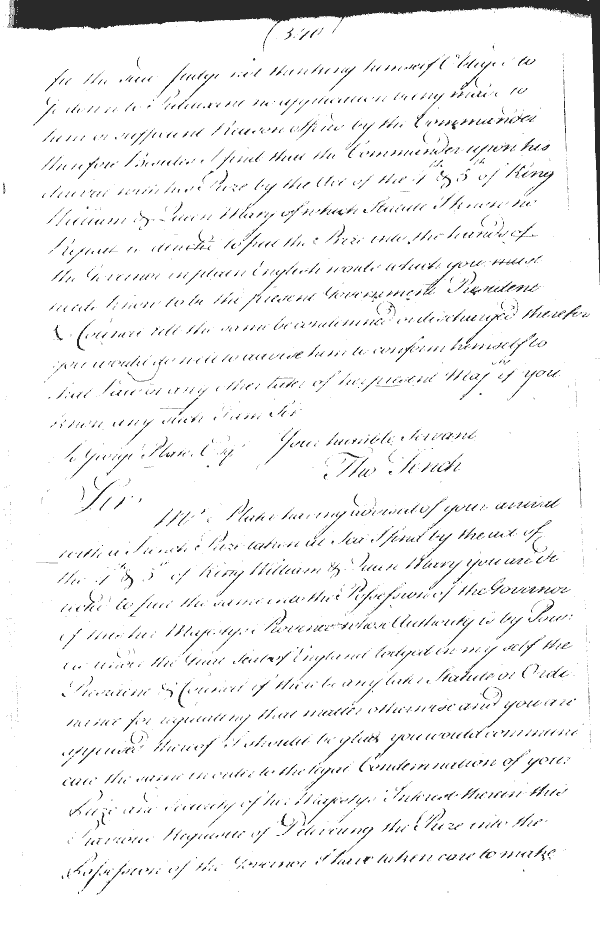 (340)
for the said Judge not thinking himself Obliged to
Go down to Patuxent no application being made to
him or sufficient Reason offered by the Commander
therefore Besides I find that the Commander upon his
arrival with his Prize by the Act of the 4th & 5th of King
William & Queen Mary of which Statute I know no
Repeal is directed to put the Prize into the hands of
the Governor in plain English words which you must
needs know to be the present Government President
& Council till the same be condemned or discharged therefor
you would do well to advise him to conform himself to
that Law or any other later of her present Majtys if you
know any such I am Sir
Your humble Servant
To George Plater Esqr
Tho Tench
Sir.
Mr. Plater having advised of your arrival
with a French Prize taken at Sea I find by the act of
the 4th & 5th of King William & Queen Mary you are di
rected to put the same into the Possession of the Governor
of this her Majestys Province whose Authority is by Pow
er under the Great Seal of England lodged in my self the
President & Council if there be any later Statute or Ordi
nance for regulating that matter otherwise and you are
apprised thereof I should be glad you would communi
cate the same in order to the legal Condemnation of your
Prize and Security of her Majestys Interest therein this
Previous Requisite of Delivering the Prize into the
Possession of the Governor I have taken care to make